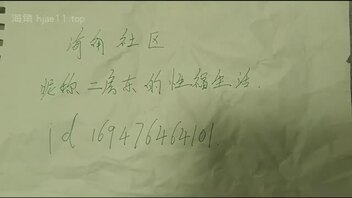 海角 hjae11.top
海角社区
昵称二房东的性福生活.
id 169476464101.